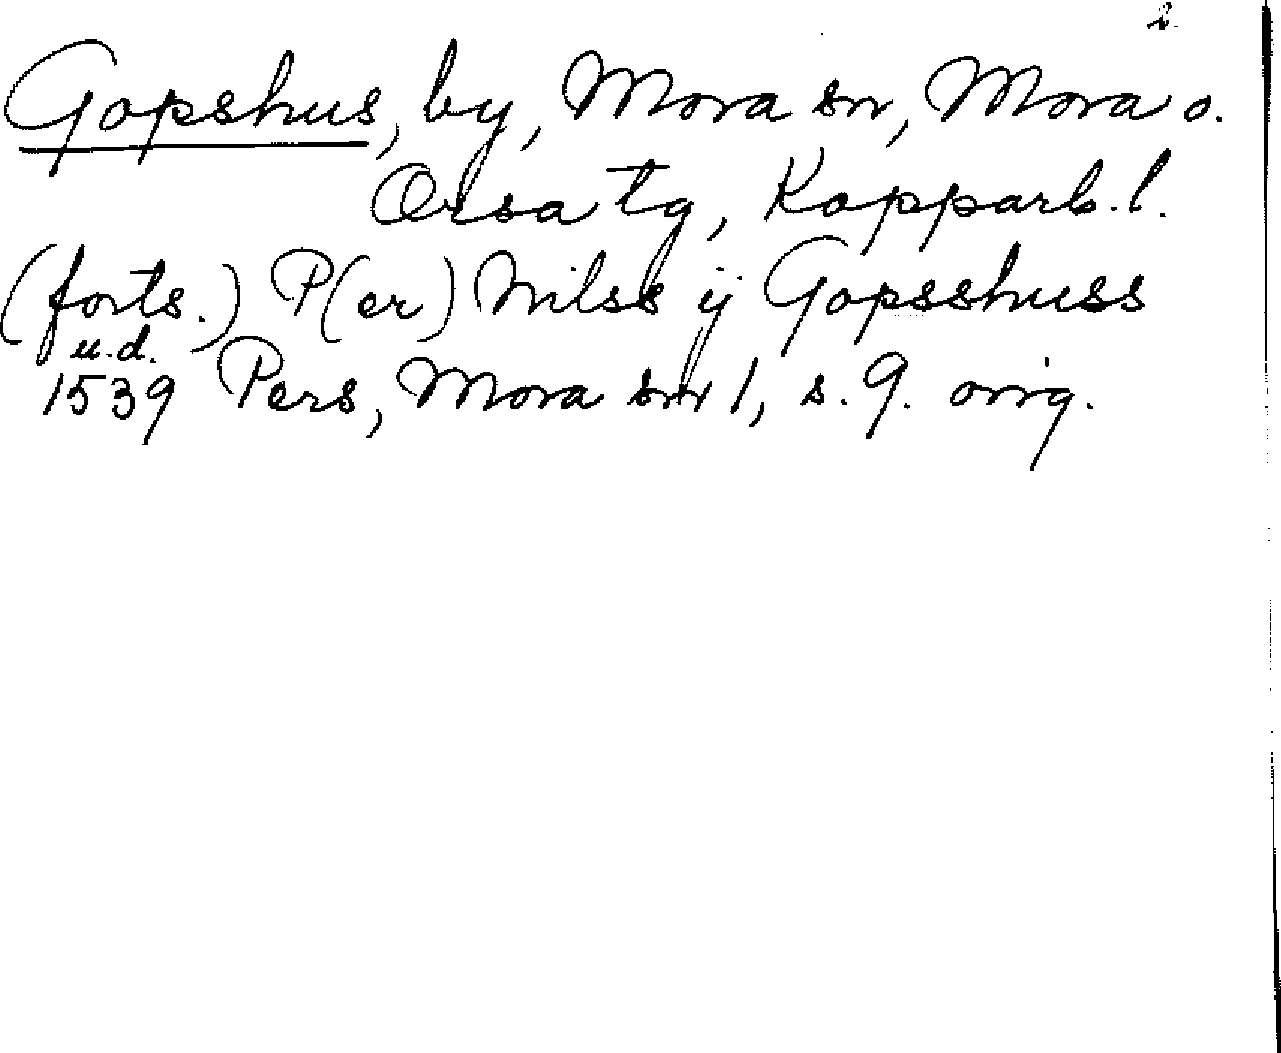 2.
Gopshus, by, Mora sn, Mora o.
Orsa tg, Kopparb. l.
(forts.) P(er) Nilss ij Gopsshuss
u.d.
1539 Pers, Mora sn 1, s. 9. orig.